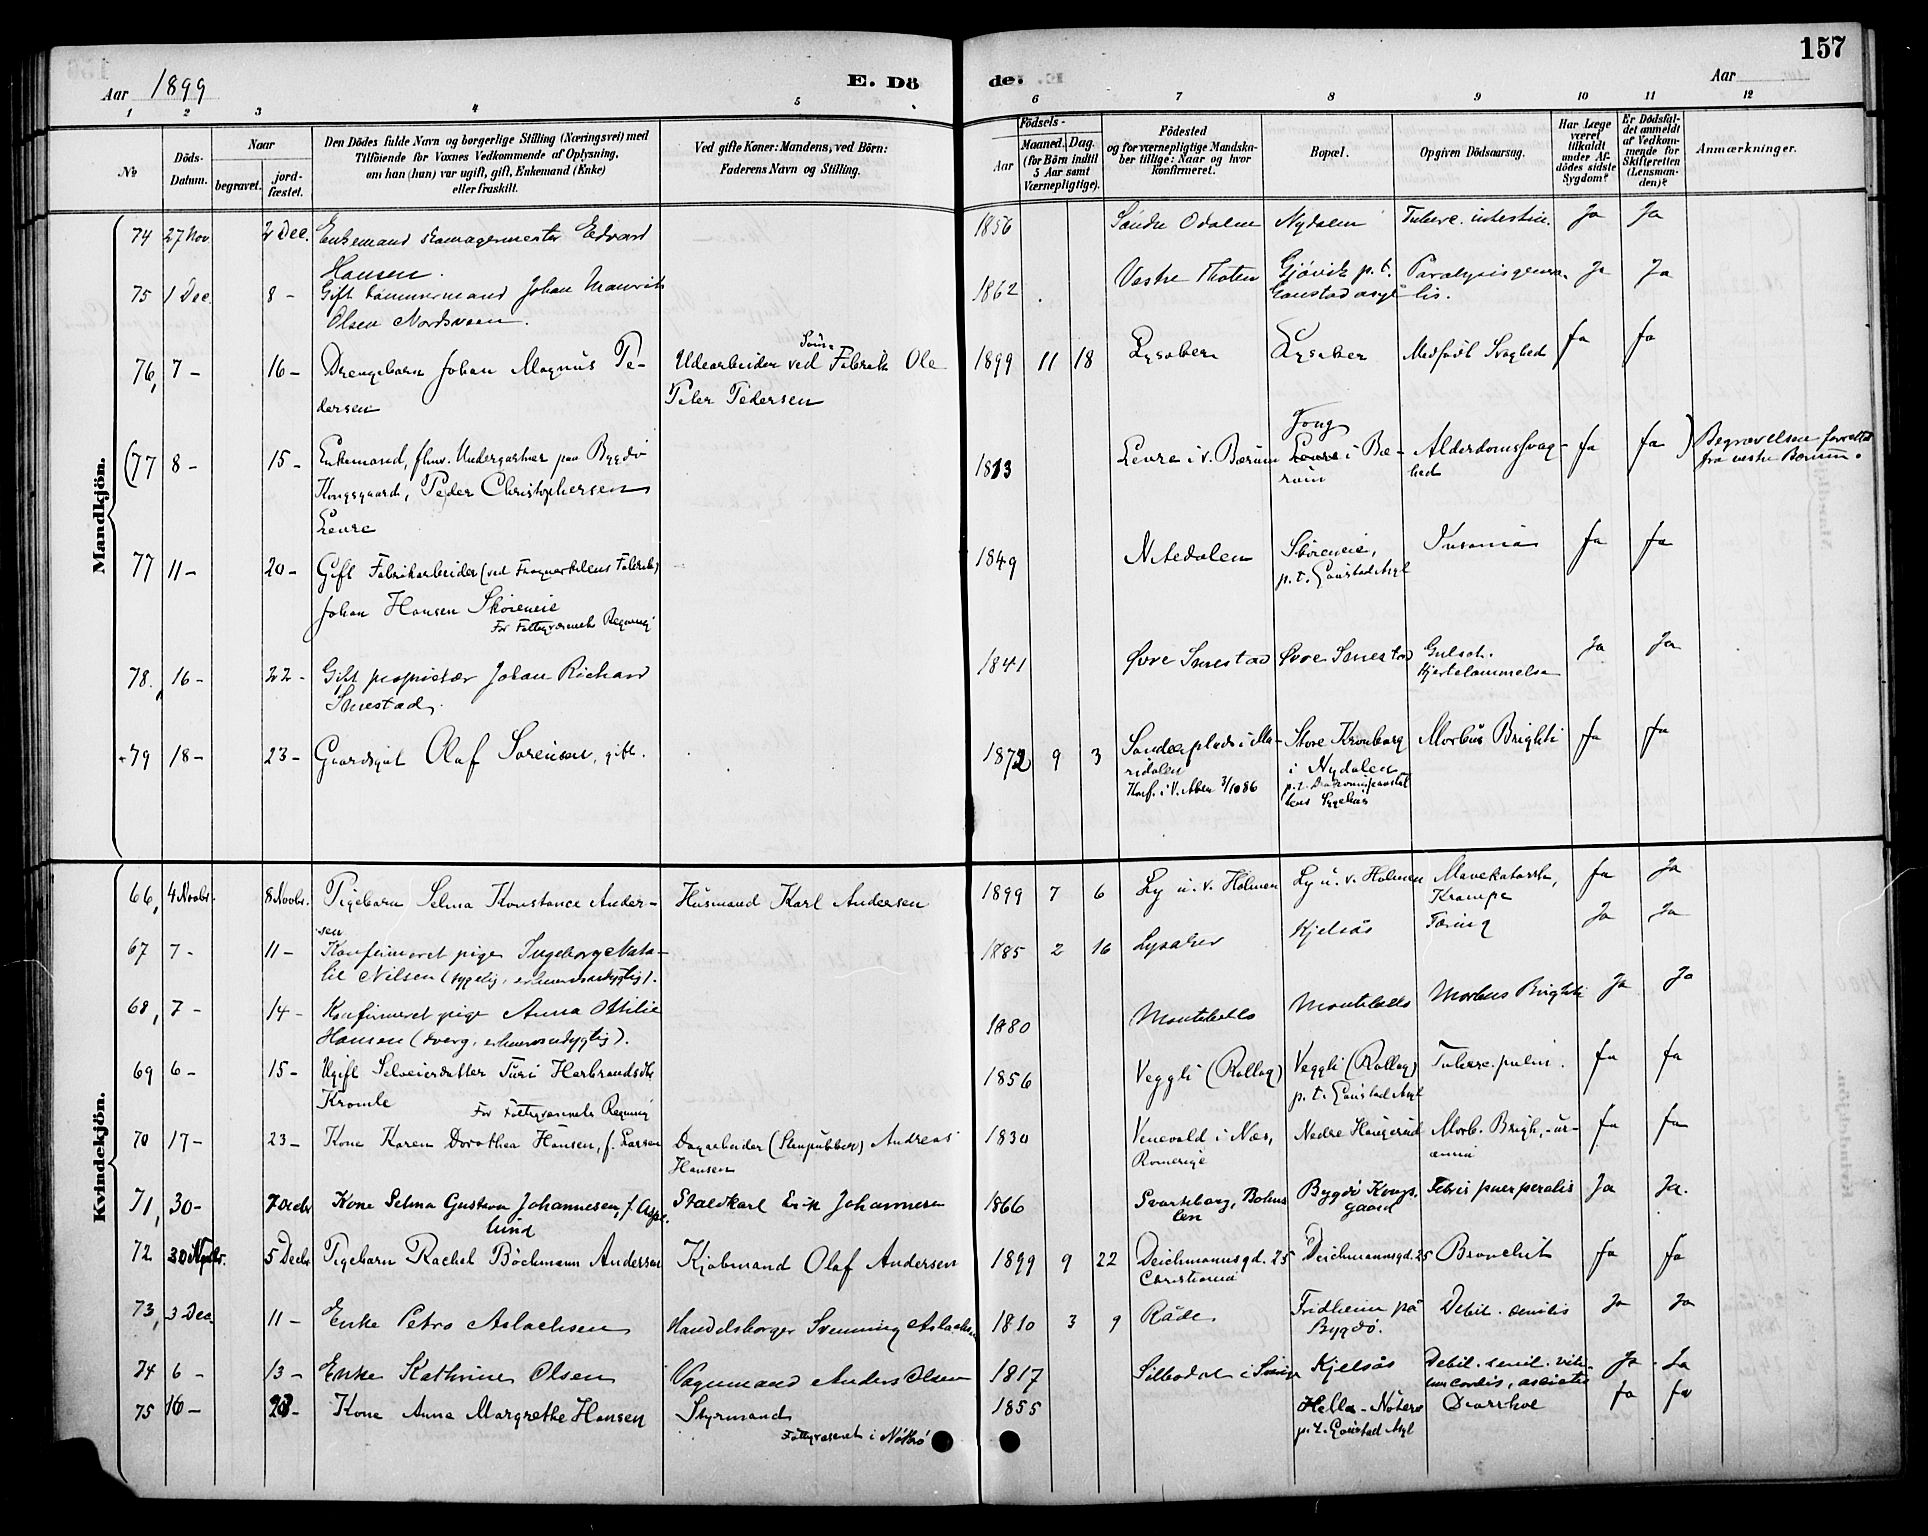 157
Aar 1899
E. Döde.
Aar
1 2 3 4 5 6 7 8 9 10 11 12
No
Döds-Datum.
Naar
begravet.
jord-fæstet.
Den Dödes fulde Navn og borgerlige Stilling (Næringsvei) med
Tilföiende for Voxnes Vedkommende af Oplysning,
om han (hun) var ugift, gift, Enkemand (Enke)
eller fraskilt.
Ved gifte Koner: Mandens, ved Börn:
Faderens Navn og Stilling.
Födsels-
Aar
Maaned. Dag.
(for Börn indtil 5 Aar samt Værnepligtige).
Födested
og for værnepligtige Mandskaber tillige: Naar og hvor konfirmeret.
Bopæl.
Opgiven Dödsaarsag.
Har Læge været tilkaldt under Afdödes sidste Sygdom?
Er Dödsfaldet anmeldt af Vedkommende for Skifteretten (Lensmanden)?
Anmærkninger.
Mandkjön.
74 27 Nov 2 Dec. Enkemand Edvard Hansen. 1856 Söndre Odalen Nydalen Tuberc. intestin. Ja Ja
75 1 Dec. 8 - Gift Tømmermand Johan Maurits Olsen Nordsveen. 1862 Vestre Thoten Gjövik p.t. Gaustad asyl Paralysis generalis. Ja Ja
76, 7 - 16 - Drengebarn Johan Magnus Pedersen Udearbeider ved Fabrik Ole Peter Pedersen 1899 11 18 Lysaker Lysaker Medfödt Svaghed Ja Ja
(77 8 - 15 - Enkemand, fhnv. Undergartner paa Bygdö Kongsgaard, Peder Christophersen Levre 1813 Levre i V. Bærum Jong i Bærum Alderdomssvaghed Ja Ja) Begravelsen forrettet fra vestre Bærum.
77 11 - 20 - Gift Fabrikarbeider (ved Fabrik) Johan Hansen Skøreneie For Fattigvæsenets Regning 1849 Nitedalen Skøreneie, p.t. Gaustad Asyl Insania Ja Ja
78. 16 - 22 - Gift proprietær Johan Richard Smestad. 1841 Øvre Smestad Øvre Smestad Gulsot. Hjertelammelse Ja Ja
79 18 - 23 - Gaardsgut Olaf Sorensen, gift. 1872 9 3 Sanderplads i Maridalen Konf. i V. Aker 3/10 86 Store Kronborg i Nydalen p.t. Diakonisseanstaltens Sygehus Morbus Brighti Ja Ja
Kvindekjön.
66, 4 Novbr. 8 Novbr. Pigebarn Selma Konstance Andersen Husmand Karl Andersen 1899 7 6 Ly u. v. Holmen Ly u. v. Holmen Mavekatarrh, Krampe Ja Ja
67 7 - 11 - Konfirmeret pige Ingeborg Natalie Nilsen (sygelig, erhvervsudygtig). 1885 2 16 Lysaker Kjelsås Tæring Ja Ja
68, 7 - 14 - Konfirmeret pige Anna Ottilie Hansen (dverg, erhvervsudygtig). 1880 Montebello Montebello Morbus Brighti Ja Ja
69 6 - 15 - Ugift Selveierdatter Turi Herbrandsdtr Kromle For Fattigvæsenets Regning 1856 Veggli (Rollag) Veggli (Rollag) p.t. Gaustad Asyl Tuberc. pulm. Ja Ja
70 17 - 23 - Kone Karen Dorothea Hansen, f. Larsen Dagarbeider (Stenpukker) Andreas Hansen 1830 Venevald i Næs, Romerige Nedre Haugerud Morb. Brigh., -uræmia Ja Ja
71, 30 - 7 Decbr Kone Selma Gustava Johannesen, f. Asplund Staldkarl Erik Johannesen 1866 Svarteborg, Bohuslen Bygdö Kongsgaard Febris puerperalis Ja Ja.
72 30 Novbr. 5 Decbr Pigebarn Rachel Böckmann Andersen Kjöbmand Olaf Andersen 1899 9 22 Deichmannsgd. 25 Christiania Deichmannsgd. 25 Bronchit Ja Ja
73, 3 Dec. 11 - Enke Petra Aslachsen Handelsborger Svenning Aslachsen 1810 3 9 Råde Fridheim på Bygdø. Debil. senilis Ja Ja
74 6 - 13 - Enke Kathrine Olsen Vognmand Anders Olsen 1817 Silbodal i Sverige Kjelsås Debil. senil. vitium cordis, ascites Ja Ja
75 16 - 23 - Kone Anna Margrethe Hansen Styrmand Fattigvæsenet i Nøterø 1855 Hella - Nøterø p.t. Gaustad Asyl Diarrhoe Ja Ja